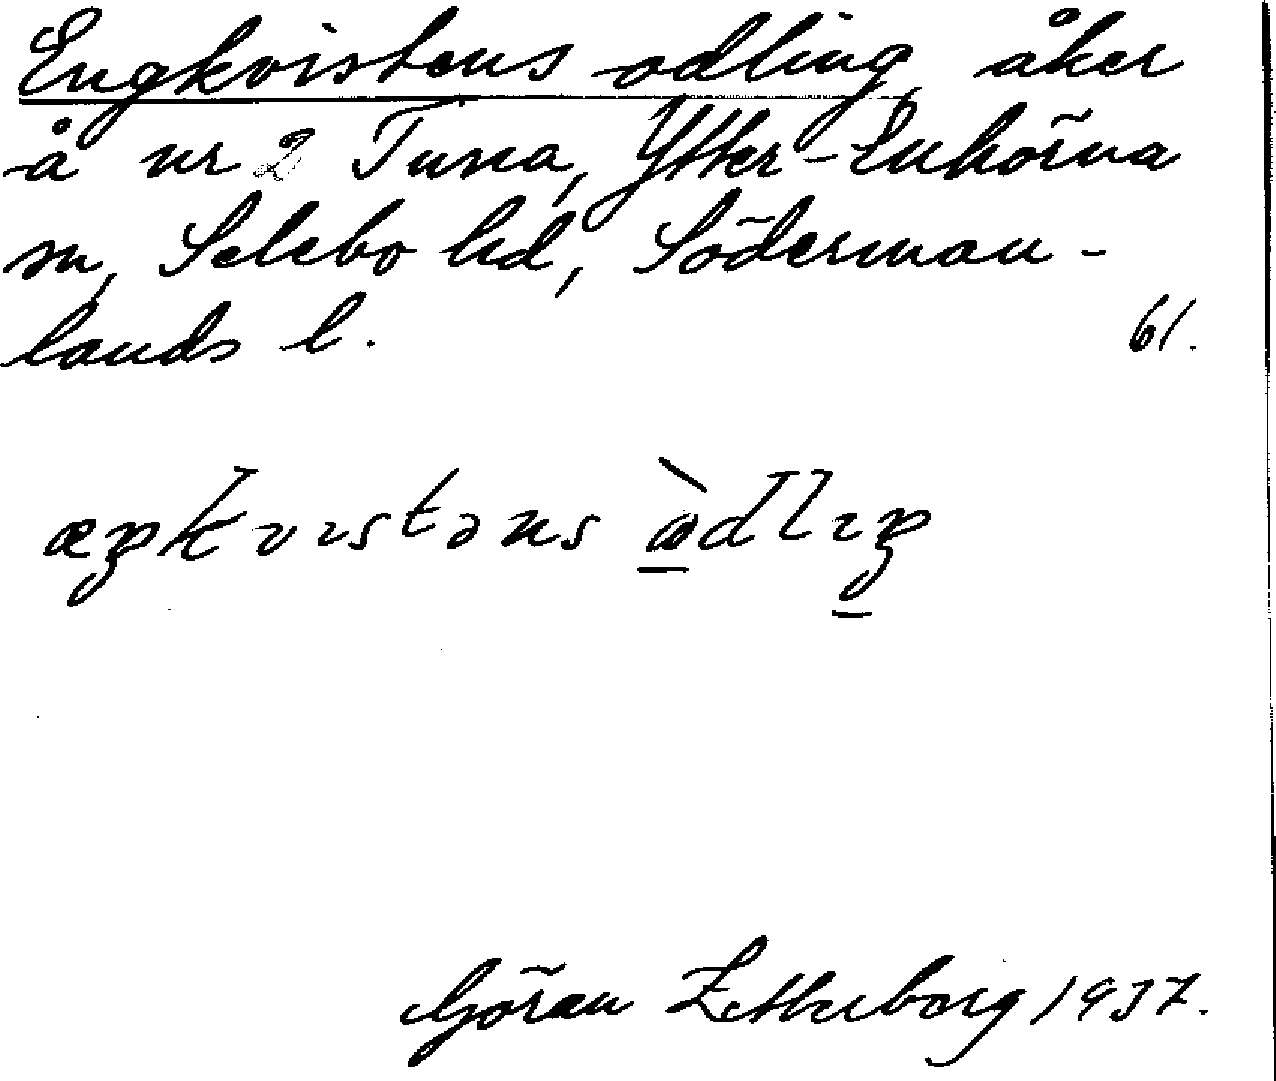 Engkvistens odling, åker
å nr 2 Tuna, Ytter-Enhörna
sn, Selebo hd, Söderman-
lands l. 61.
æŋkvistəns òdlıŋ
Göran Zetterborg 1937.